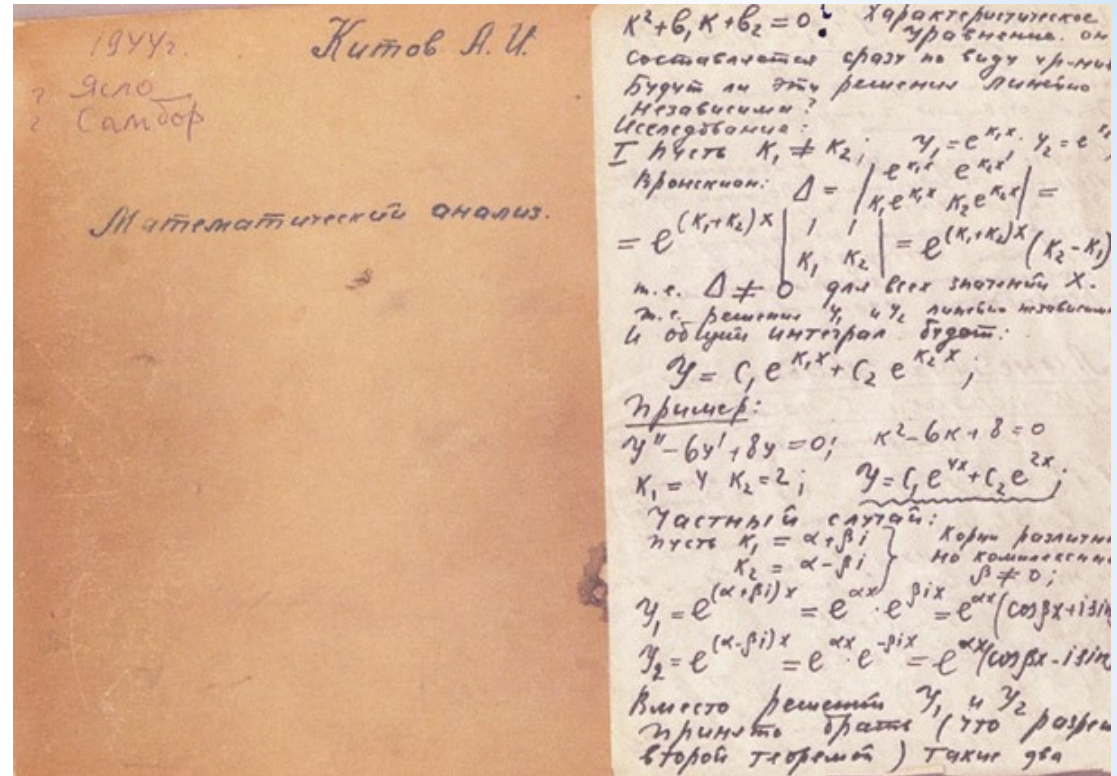 1944г.
г Ясло
г Самбор
Китов А. И.
Математический анализ.
K² + b₁K + b₂ = 0. Характеристическое
уравнение. он
составляется сразу по виду ур-ния
Будут ли эти решения линейно
независимы?
Исследование:
I Пусть K₁ ≠ K₂; y₁ = e^{K₁x}. y₂ = e
Вронскиан: Δ = | e^{K₁x} e^{K₂x} ; K₁e^{K₁x} K₂e^{K₂x} | =
= e^{(K₁+K₂)x} | 1 1 ; K₁ K₂ | = e^{(K₁+K₂)x}(K₂-K₁)
т.е. Δ ≠ 0 для всех значений X.
т.е. решения y₁ и y₂ линейно независимы
И общий интеграл будет:
y = C₁e^{K₁x} + C₂e^{K₂x};
Пример:
y'' - 6y' + 8y = 0; K² - 6K + 8 = 0
K₁ = 4 K₂ = 2; y = C₁e^{4x} + C₂e^{2x};
Частный случай:
Пусть K₁ = α + βi } Корни различн
K₂ = α - βi } но комплексны
β ≠ 0;
y₁ = e^{(α+βi)x} = e^{αx} · e^{βix} = e^{αx}(cosβx + i sin
y₂ = e^{(α-βi)x} = e^{αx} · e^{-βix} = e^{αx}(cosβx - i sin
Вместо решений y₁ и y₂
принято брать (что разре
второй теоремой) такие два